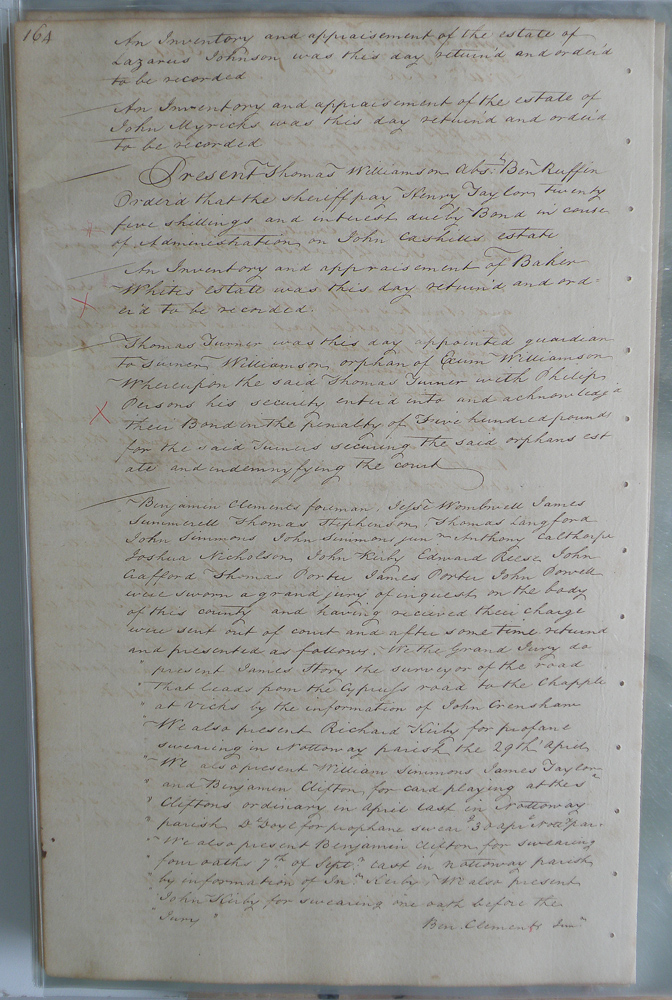 164
An Inventory and appraisement of the estate of
Lazarus Johnson was this day return'd and order'd
to be recorded
An Inventory and appraisement of the estate of
John Myricks was this day return'd and order'd
to be recorded
Present Thomas Williamson Abst. Ben Ruffin
Order'd that the sheriff pay Henry Taylor twenty
five shillings and interest due by Bond in course
of Administration on John Cashills estate
An Inventory and appraisement of Baker
Whites estate was this day return'd and ord=
er'd to be recorded.
Thomas Turner was this day appointed guardian
to Turner Williamson orphan of Exum Williamson
Whereupon the said Thomas Turner with Philip
Persons his security enter'd into and acknowledg'd
their Bond in the penalty of Five hundred pounds
for the said Turners securing the said orphans est
ate and indemnyfying the court
Benjamin Clements foreman, Jesse Wombwell James
Summerell Thomas Stephenson Thomas Langford
John Simmons John Simmons junr Anthony Calthorpe
Joshua Nicholson John Kirby Edward Reese John
Crafford Thomas Porter James Porter John Powell
were sworn a grand jury of inquest on the body
of this county and having received their charge
were sent out of court and after some time returnd
and presented as follows. We the Grand Jury do
" present James Story the surveyor of the road
" that leads from the Cypress road to the Chapple
" at Vicks by the information of John Crenshaw
" We also present Richard Kirby for profane
swearing in Nottoway parish the 29th April
" We also present William Simmons James Taylor
" and Benjamin Clifton for card playing at the s
" Cliftons ordinary in April last in Nottoway
" parish Do Doyl for prophane swear.g 30 apr. Nott.o par.
" We also present Benjamin Clifton for swearing
" four oaths 7th of Sept. last in Nottoway parish
" by information of Jno Kirby. We also present
" John Kirby for swearing one oath before the
" Jury "
Ben. Clements